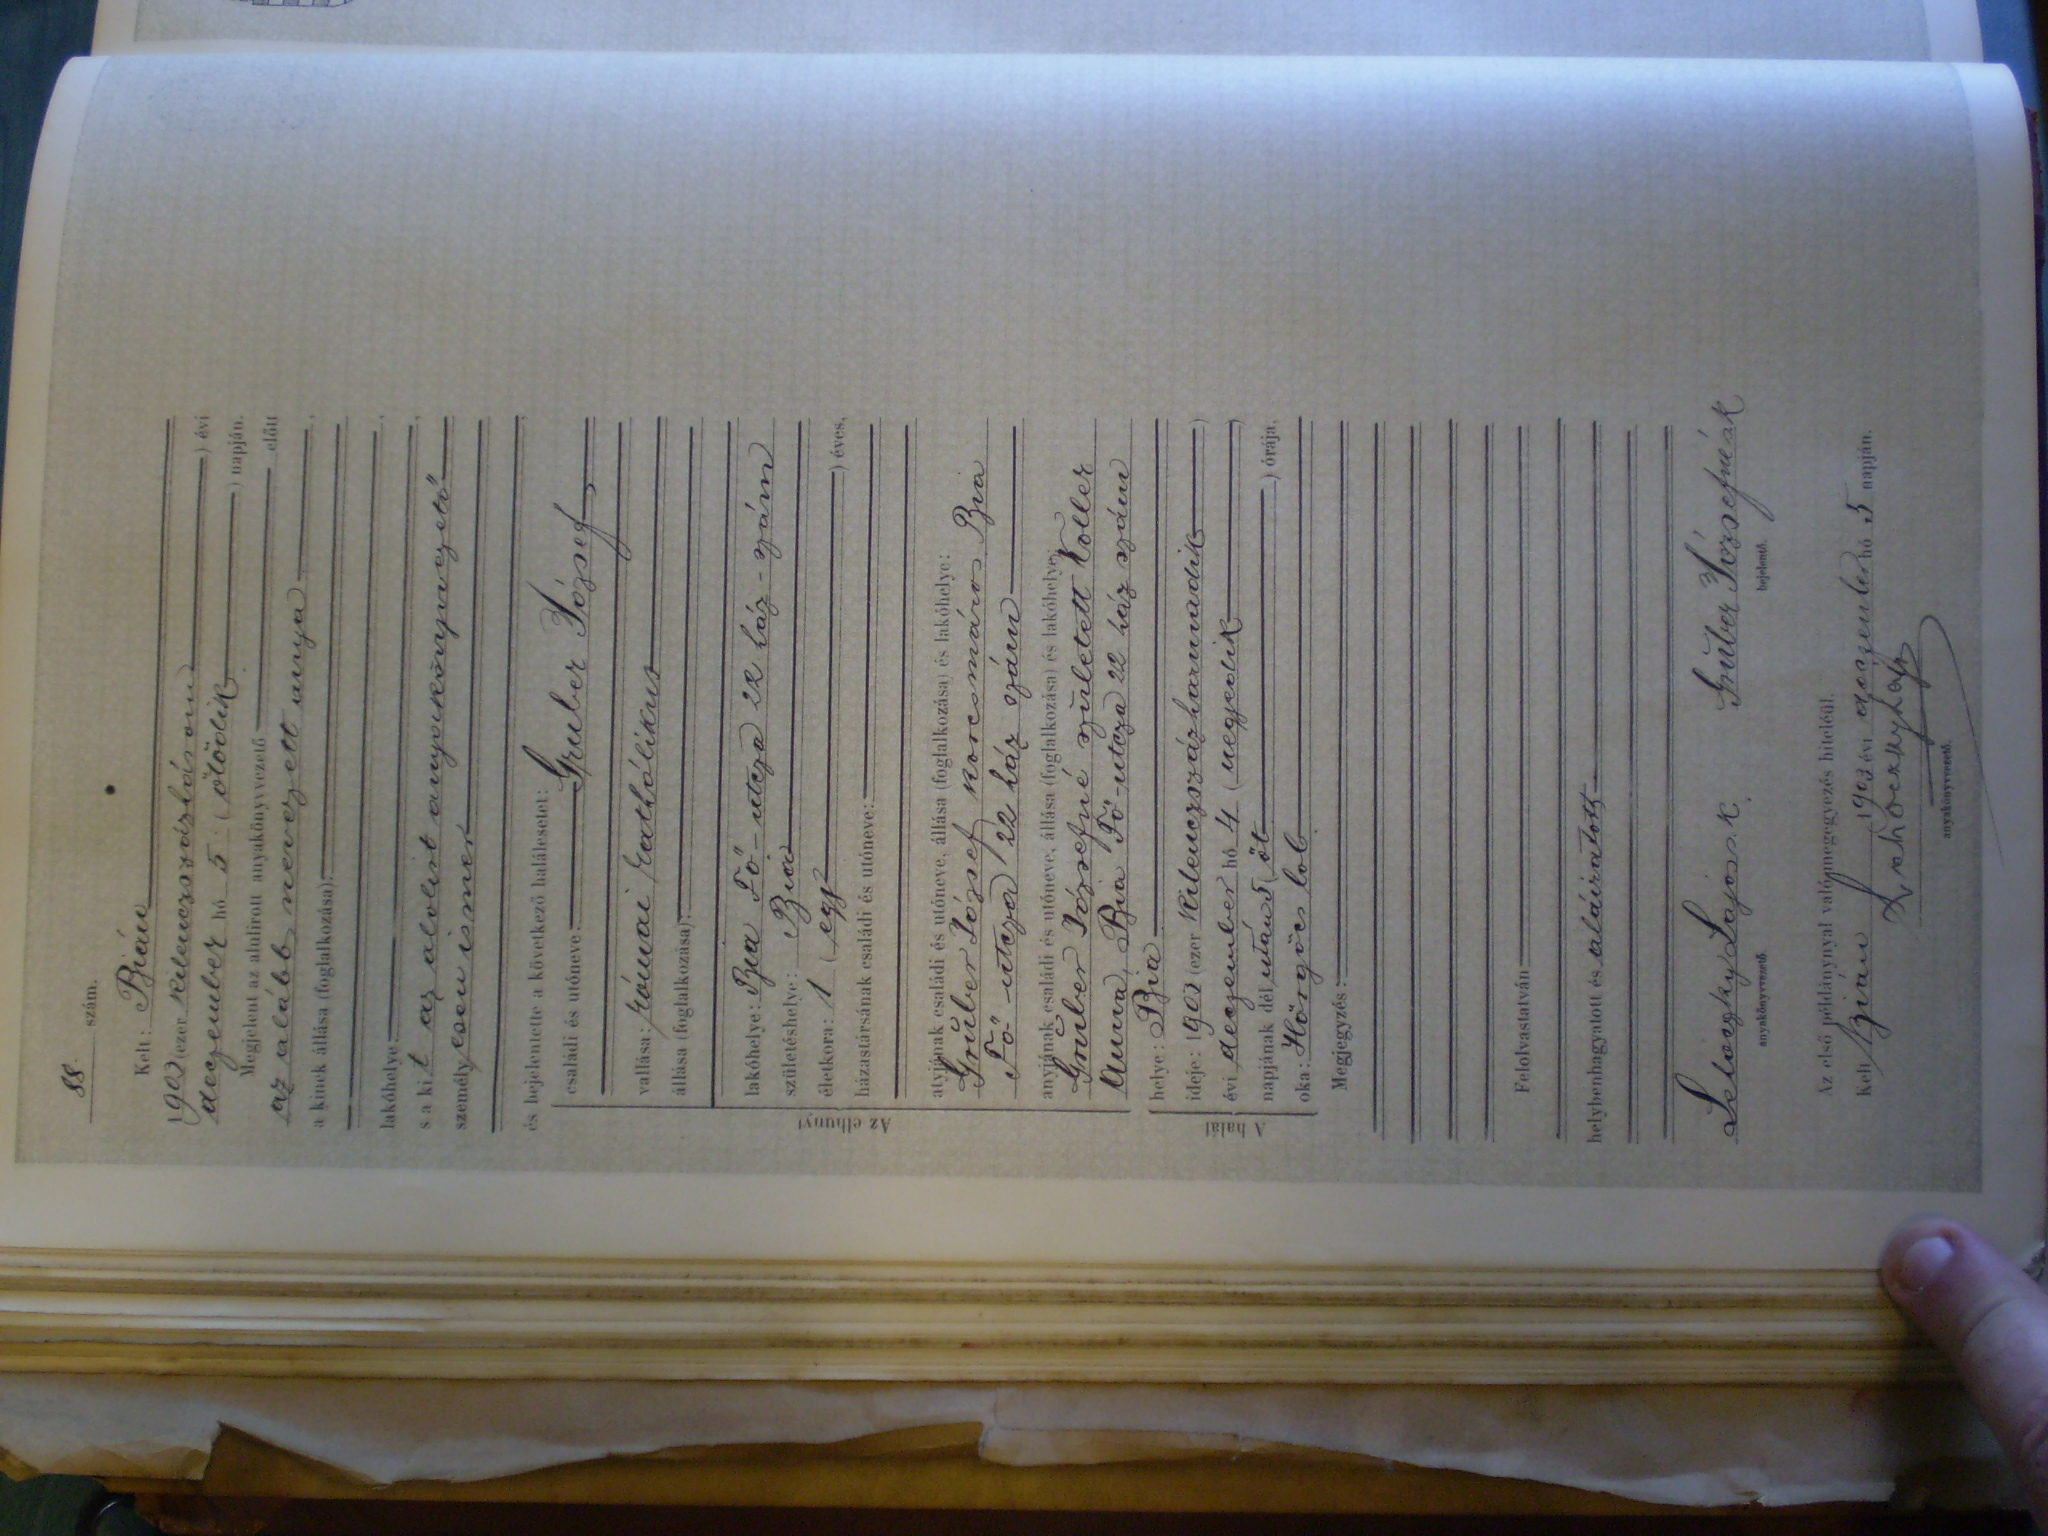 88. szám.
Kelt: Bián
1903 (ezer kilenczszázhárom) évi
deczember hó 5 (ötödik) napján.
Megjelent az alulirott anyakönyvvezető előtt
az alább nevezett anya
a kinek állása (foglalkozása):
lakóhelye:
s a kit az alolirt anyakönyvvezető
személyesen ismer
és bejelentette a következő halálesetet:
Az elhunyt
családi és utóneve: Gruber József
vallása: római katholikus
állása (foglalkozása):
lakóhelye: Bia Fő-utcza 22 ház-szám
születéshelye: Bia
életkora: 1 (egy) éves,
házastársának családi és utóneve:
atyjának családi és utóneve, állása (foglalkozása) és lakóhelye:
Gruber József kocsmáros Bia
Fő-utcza 22 ház szám
anyjának családi és utóneve, állása (foglalkozása) és lakóhelye:
Gruber Józsefné született Koller
Anna, Bia Fő-utcza 22 ház szám
A halál
helye: Bia
ideje: 1903 (ezer kilenczszázharmadik)
évi deczember hó 4 (negyedik)
napjának dél után 5 (öt) órája,
oka: Hörgőcs lob
Megjegyzés:
Felolvastatván
helybenhagyatott és aláiratott
Lajos s. k. Gruber Józsefné s. k.
anyakönyvvezető. bejelentő.
Az első példánynyal való megegyezés hiteléül.
Kelt Bián 1903 évi deczember hó 5 napján.
anyakönyvvezető.